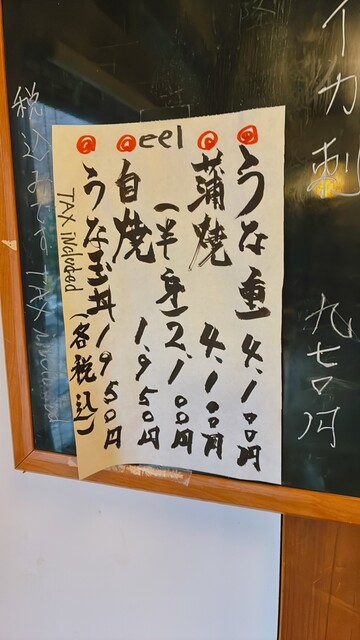 イカ刺
九七〇円
eel
うな重 4,100円
蒲焼 4,100円
(半身) 2,100円
白焼 1,950円
うな玉丼 1950円
(各税込)
TAX included
税込
TAX included